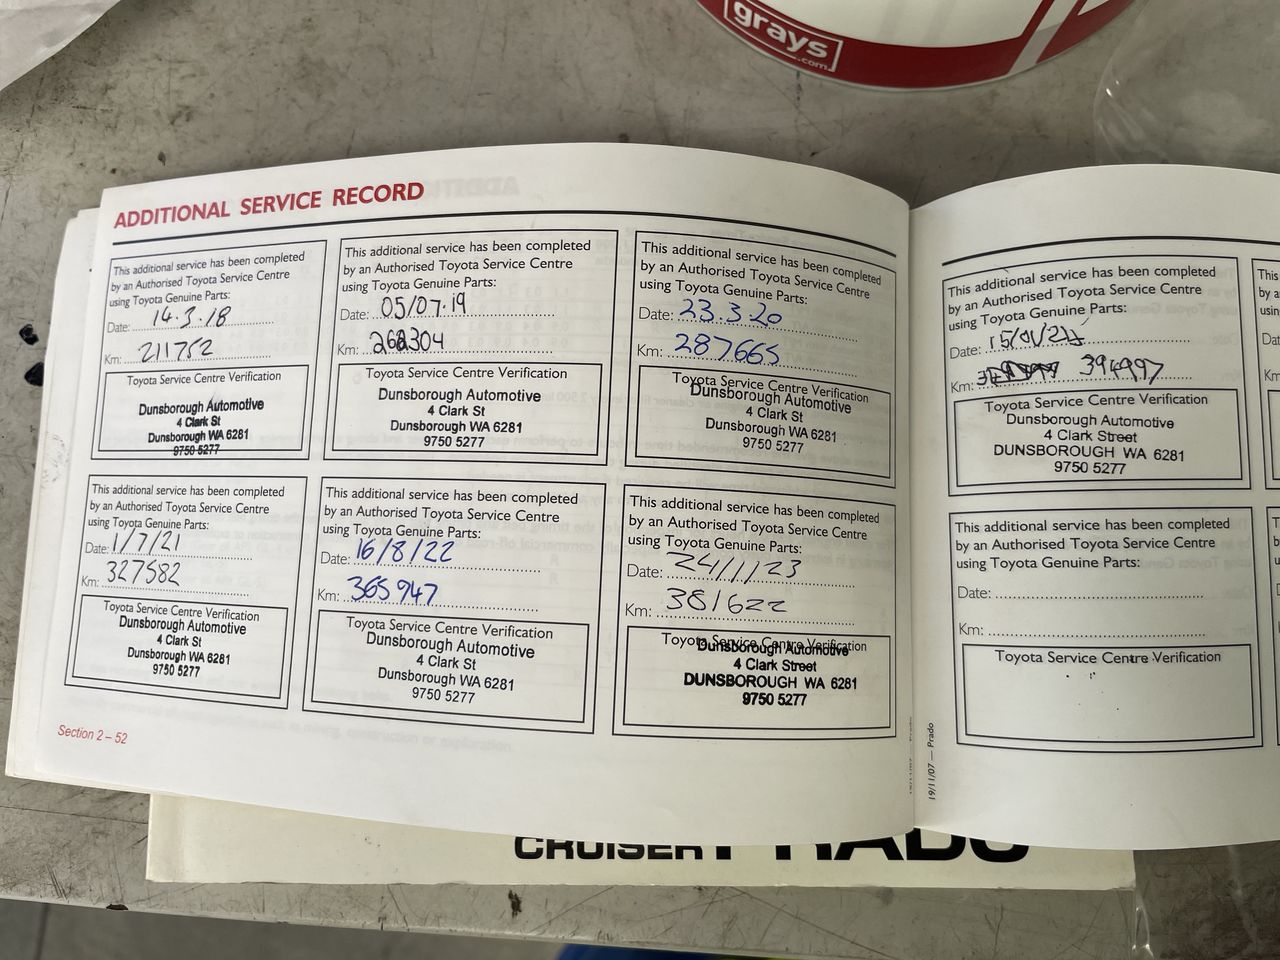 grays
.com.
ADDITIONAL SERVICE RECORD
This additional service has been completed
by an Authorised Toyota Service Centre
using Toyota Genuine Parts:
Date: 14.3.18
Km: 211752
Toyota Service Centre Verification
Dunsborough Automotive
4 Clark St
Dunsborough WA 6281
9750 5277
This additional service has been completed
by an Authorised Toyota Service Centre
using Toyota Genuine Parts:
Date: 05/07.19
Km: 268304
Toyota Service Centre Verification
Dunsborough Automotive
4 Clark St
Dunsborough WA 6281
9750 5277
This additional service has been completed
by an Authorised Toyota Service Centre
using Toyota Genuine Parts:
Date: 23.3.20
Km: 287665
Toyota Service Centre Verification
Dunsborough Automotive
4 Clark St
Dunsborough WA 6281
9750 5277
This additional service has been completed
by an Authorised Toyota Service Centre
using Toyota Genuine Parts:
Date: 1/7/21
Km: 327582
Toyota Service Centre Verification
Dunsborough Automotive
4 Clark St
Dunsborough WA 6281
9750 5277
This additional service has been completed
by an Authorised Toyota Service Centre
using Toyota Genuine Parts:
Date: 16/8/22
Km: 365947
Toyota Service Centre Verification
Dunsborough Automotive
4 Clark St
Dunsborough WA 6281
9750 5277
This additional service has been completed
by an Authorised Toyota Service Centre
using Toyota Genuine Parts:
Date: 24/1/23
Km: 381622
Toyota Service Centre Verification
Dunsborough Automotive
4 Clark Street
DUNSBOROUGH WA 6281
9750 5277
Section 2 – 52
This additional service has been completed
by an Authorised Toyota Service Centre
using Toyota Genuine Parts:
Date: 15/01/24
Km: 394997
Toyota Service Centre Verification
Dunsborough Automotive
4 Clark Street
DUNSBOROUGH WA 6281
9750 5277
This additional service has been completed
by an Authorised Toyota Service Centre
using Toyota Genuine Parts:
Date:
Km:
Toyota Service Centre Verification
19/11/07 — Prado
CRUISER PRADO